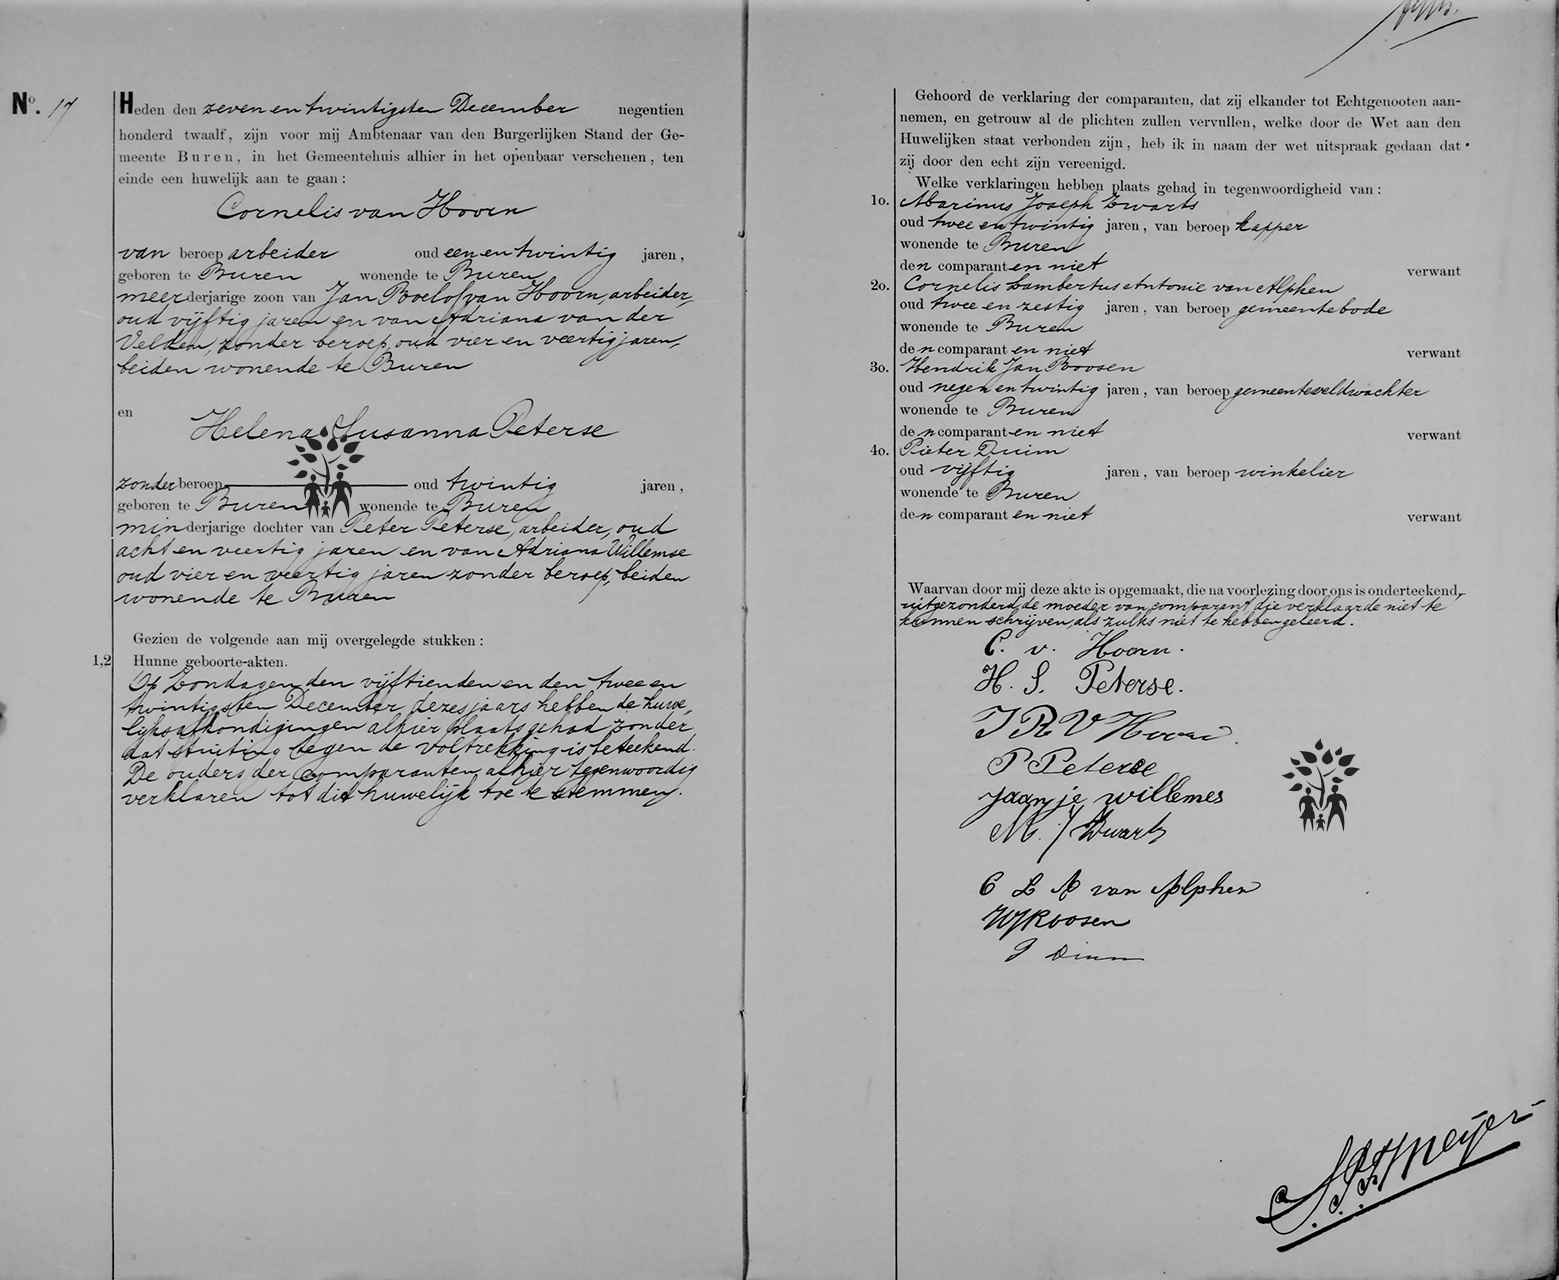 No. 17
Heden den zeven en twintigsten December negentien
honderd twaalf, zijn voor mij Ambtenaar van den Burgerlijken Stand der Ge-
meente Buren, in het Gemeentehuis alhier in het openbaar verschenen, ten
einde een huwelijk aan te gaan:
Cornelis van Hoorn
van beroep arbeider oud een en twintig jaren,
geboren te Buren wonende te Buren
meerderjarige zoon van Jan Roelof van Hoorn, arbeider,
oud vijftig jaren en van Adriana van der
Velden, zonder beroep, oud vier en veertig jaren,
beiden wonende te Buren
en
Helena Susanna Peterse
zonder beroep oud twintig jaren,
geboren te Buren wonende te Buren
minderjarige dochter van Peter Peterse, arbeider, oud
acht en veertig jaren en van Adriana Willemse
oud vier en veertig jaren zonder beroep, beiden
wonende te Buren
Gezien de volgende aan mij overgelegde stukken:
1,2 Hunne geboorte-akten.
Op Zondagen den vijftienden en den twee en
twintigsten December dezes jaars hebben de huwe-
lijksafkondigingen alhier plaats gehad zonder
dat stuiting tegen de voltrekking is beteekend.
De ouders der comparanten, alhier tegenwoordig
verklaren tot dit huwelijk toe te stemmen.
Gehoord de verklaring der comparanten, dat zij elkander tot Echtgenooten aan-
nemen, en getrouw al de plichten zullen vervullen, welke door de Wet aan den
Huwelijken staat verbonden zijn, heb ik in naam der wet uitspraak gedaan dat
zij door den echt zijn vereenigd.
Welke verklaringen hebben plaats gehad in tegenwoordigheid van:
1o. Marinus Joseph Zwarts
oud twee en twintig jaren, van beroep kapper
wonende te Buren
den comparanten niet verwant
2o. Cornelis Lambertus Antonie van Alphen
oud twee en zestig jaren, van beroep gemeentebode
wonende te Buren
den comparanten niet verwant
3o. Hendrik Jan Roosen
oud negen en twintig jaren, van beroep gemeenteveldwachter
wonende te Buren
den comparanten niet verwant
4o. Pieter Duim
oud vijftig jaren, van beroep winkelier
wonende te Buren
den comparanten niet verwant
Waarvan door mij deze akte is opgemaakt, die na voorlezing door ons is onderteekend,
uitgezonderd, de moeder van comparant die verklaarde niet te
kunnen schrijven, als zulks niet te hebben geleerd.
C. v. Hoorn.
H. S. Peterse.
J R V Hoorn.
P Peterse
Jaanje willemes
M. J Zwarts
C L A van Alphen
HJRoosen
P Duim
Meijer